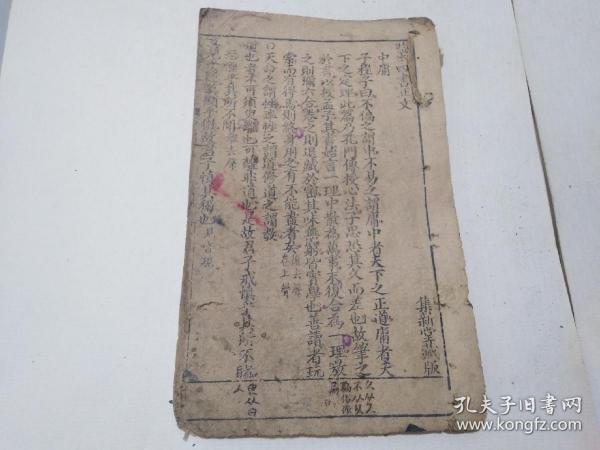 四書正文
中庸
子程子曰不偏之謂中不易之謂庸中者天下之正道庸者天
下之定理此篇乃孔門傳授心法子思恐其久而差也故筆之
於書以授孟子其書始言一理中散為萬事末復合為一理放
之則彌六合卷之則退藏於密其味無窮皆實學也善讀者玩
索而有得焉則終身用之有不能盡者矣
天命之謂性率性之謂道修道之謂教
道也者不可須臾離也可離非道也是故君子戒慎乎其所不睹
恐懼乎其所不聞
莫見乎隱莫顯乎微故君子慎其獨也
藏版
孔夫子旧书网
www.kongfz.com